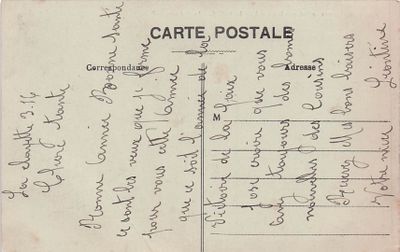 CARTE POSTALE
Correspondance
Adresse
M
La clayette 3.16
Chère tante
Bonne année Bonne Santé
ce sont les vœux que je forme
pour vous cette année
que ce soit l'année de la
Victoire de la Paix
J'ose croire que vous
avez toujours des bonnes
nouvelles des Cousins
Recevez Mes bons baisers
Votre nièce Léontine